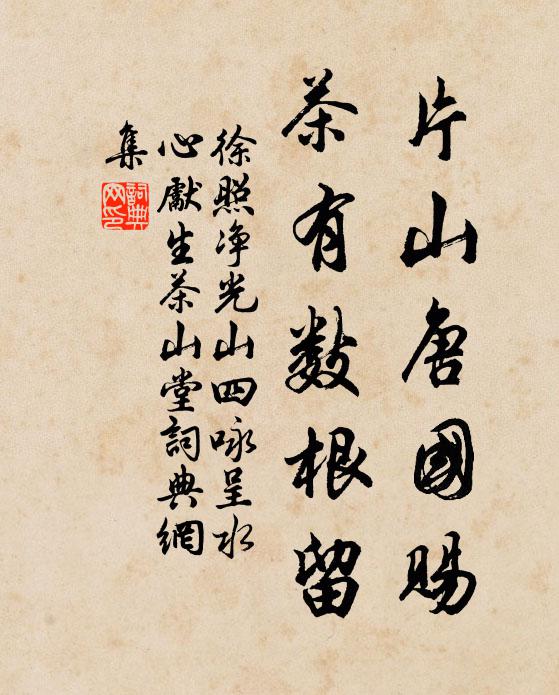 片山唐國賜
茶有數根留
徐照净光山四咏呈水
心獻生茶山堂詞典網
集
詞典
网印